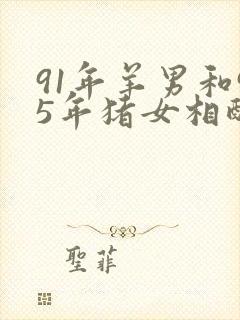 91年羊男和
5年猪女相
聖菲